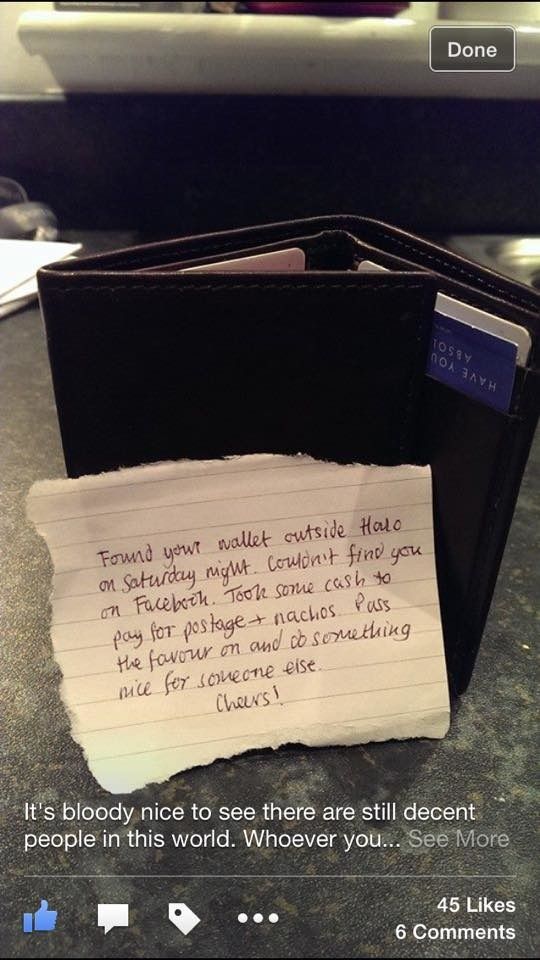 Done
HAVE YOU
ABSOL
Found your wallet outside Halo
on Saturday night. Couldn't find you
on Facebook. Took some cash to
pay for postage + nachos. Pass
the favour on and do something
nice for someone else.
Cheers!
It's bloody nice to see there are still decent
people in this world. Whoever you... See More
45 Likes
6 Comments